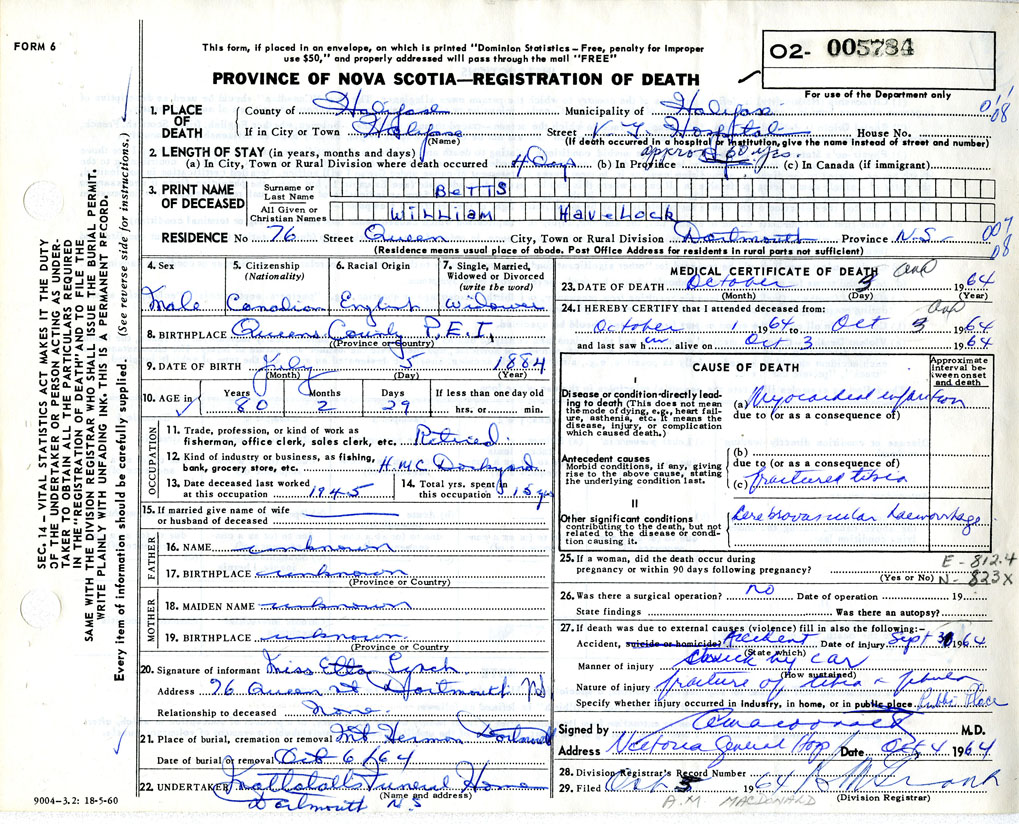 FORM 6
This form, if placed in an envelope, on which is printed "Dominion Statistics – Free, penalty for improper
use $50," and properly addressed will pass through the mail "FREE"
02- 005784
PROVINCE OF NOVA SCOTIA—REGISTRATION OF DEATH
For use of the Department only
1. PLACE OF DEATH County of Halifax Municipality of Halifax
If in City or Town Halifax (Name) Street V G Hospital House No.
(If death occurred in a hospital or institution, give name instead of street and number)
2. LENGTH OF STAY (in years, months and days) approx 60 yrs.
(a) In City, Town or Rural Division where death occurred 4 Days (b) In Province (c) In Canada (if immigrant)
3. PRINT NAME OF DECEASED Surname or Last Name BETTS
All Given or Christian Names WILLIAM HAVELOCK
RESIDENCE No 76 Street Queen City, Town or Rural Division Dartmouth Province N.S.
007
08
(Residence means usual place of abode. Post Office Address for residents in rural parts not sufficient)
4. Sex Male
5. Citizenship (Nationality) Canadian
6. Racial Origin English
7. Single, Married, Widowed or Divorced (write the word) Widower
8. BIRTHPLACE Queens County P.E.I.
(Province or Country)
9. DATE OF BIRTH July 5 1884
(Month) (Day) (Year)
10. AGE in Years 80 Months 2 Days 29 If less than one day old hrs. or min.
OCCUPATION
11. Trade, profession, or kind of work as fisherman, office clerk, sales clerk, etc. Retired.
12. Kind of industry or business, as fishing, bank, grocery store, etc. H.M.C. Dockyard
13. Date deceased last worked at this occupation 1945
14. Total yrs. spent in this occupation 15 yrs
15. If married give name of wife or husband of deceased
FATHER
16. NAME unknown
17. BIRTHPLACE unknown
(Province or Country)
MOTHER
18. MAIDEN NAME unknown
19. BIRTHPLACE unknown
(Province or Country)
20. Signature of informant Miss Etta Lynch
Address 76 Queen St Dartmouth NS
Relationship to deceased None.
21. Place of burial, cremation or removal Mt Hermon Dartmouth
Date of burial or removal Oct 6/64
22. UNDERTAKER Mattatalls Funeral Home
(Name and address)
Dartmouth N.S
MEDICAL CERTIFICATE OF DEATH
23. DATE OF DEATH October 3 1964
(Month) (Day) (Year)
24. I HEREBY CERTIFY that I attended deceased from:
October 1 1964 to Oct 3 1964
and last saw him alive on Oct 3 1964
CAUSE OF DEATH
Approximate interval between onset and death
I
Disease or condition directly leading to death (This does not mean the mode of dying, e.g., heart failure, asthenia, etc. It means the disease, injury, or complication which caused death.)
(a) Myocardial infarction
due to (or as a consequence of)
Antecedent causes
Morbid conditions, if any, giving rise to the above cause, stating the underlying condition last.
(b)
due to (or as a consequence of)
(c) fractured tibia
II
Other significant conditions contributing to the death, but not related to the disease or condition causing it.
Cerebrovascular haemorrhage
25. If a woman, did the death occur during pregnancy or within 90 days following pregnancy?
(Yes or No)
E - 812.4
N - 823X
26. Was there a surgical operation? no Date of operation 19
State findings Was there an autopsy?
27. If death was due to external causes (violence) fill in also the following:—
Accident, suicide or homicide? Accident Date of injury Sept 30 1964
(State which)
Manner of injury struck by car
(How sustained)
Nature of injury fracture of tibia & fibula
Specify whether injury occurred in industry, in home, or in public place. Public Place
Signed by M.D.
Address Victoria General Hosp Date Oct 4 1964
28. Division Registrar's Record Number
29. Filed Oct 5 1964
(Division Registrar)
A.M MACDONALD
SEC. 14—VITAL STATISTICS ACT MAKES IT THE DUTY
OF THE UNDERTAKER OR PERSON ACTING AS UNDER-
TAKER TO OBTAIN ALL THE PARTICULARS REQUIRED
IN THE "REGISTRATION OF DEATH" AND TO FILE THE
SAME WITH THE DIVISION REGISTRAR WHO SHALL ISSUE THE BURIAL PERMIT.
WRITE PLAINLY WITH UNFADING INK. THIS IS A PERMANENT RECORD.
Every item of information should be carefully supplied. (See reverse side for instructions.)
9004-3.2: 18-5-60